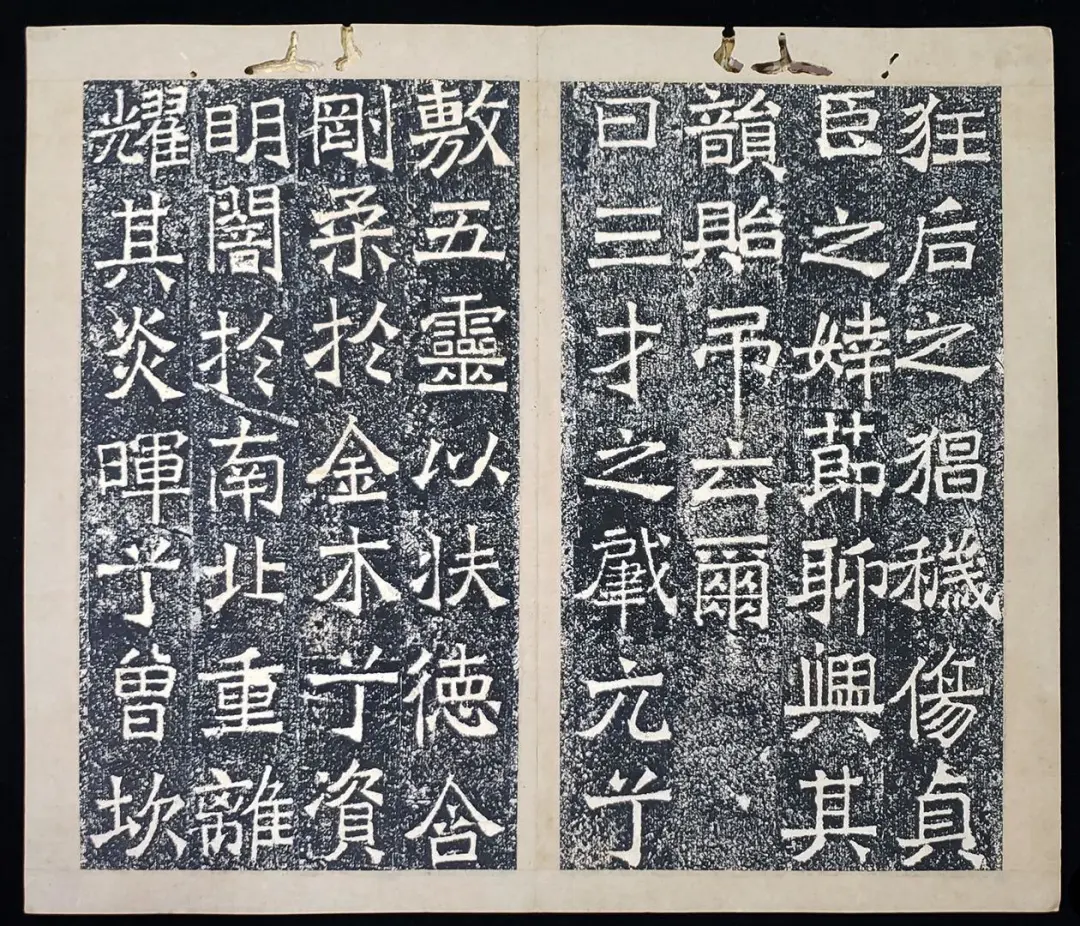 狂后之猖穢傷貞
臣之婞莭聊興其
韻貽吊云爾
曰三才之肇元兮
敷五靈以扶德含
剛柔於金木兮資
明闇於南北重離
耀其炎暉兮曾坎